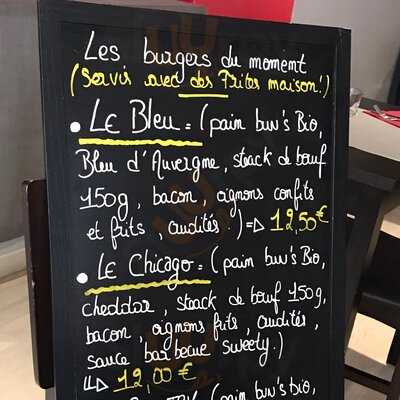 Les burgers du moment
(Servis avec des Frites maison!)
• Le Bleu = (pain bun's Bio,
Bleu d'Auvergne, steack de bœuf
150g, bacon, oignons confits
et frits, crudités.) => 12,50€
• Le Chicago = (pain bun's Bio,
cheddar, steack de bœuf 150g,
bacon, oignons frits, crudités,
sauce barbecue sweety.)
=> 12,00€
(pain bun's bio,